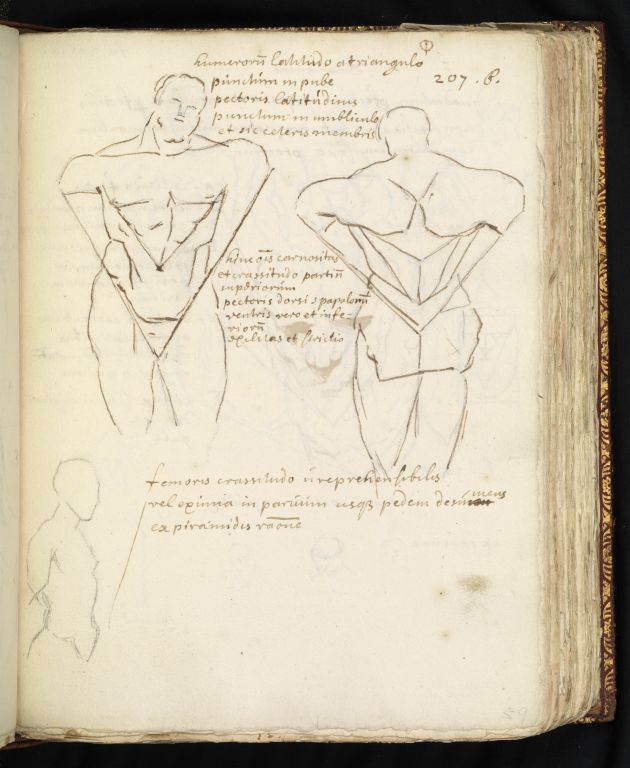 humerorũ latitudo a triangulo
207. 6.
punctum in pube
pectoris latitudinis
punctum in umbliculo
et sic ceteris membris
hinc oĩs carnositas
et crassitudo partiũ
superiorum
pectoris dorsi spapolarũ
ventris vero et infe-
riorũ
exilitas et strictio
femoris crassitudo ĩreprehensibilis
vel eximia in parvum usqȝ pedem desinens
ex piramidis raõne
59